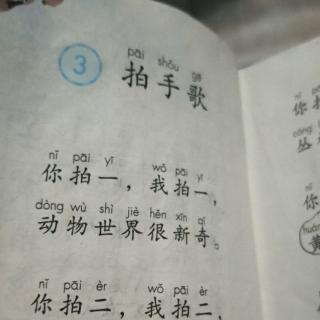 3
pāi shǒu gē
拍手歌
nǐ pāi yī wǒ pāi yī
你拍一，我拍一，
dòng wù shì jiè hěn xīn qí
动物世界很新奇。
nǐ pāi èr wǒ pāi èr
你拍二，我拍二，
nǐ
你拍
cóng
丛
nǐ
你
huáng
黄